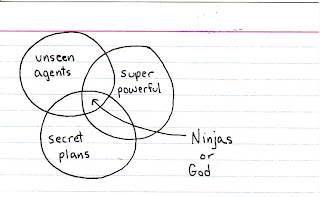 unseen
agents
super
powerful
secret
plans
Ninjas
or
God